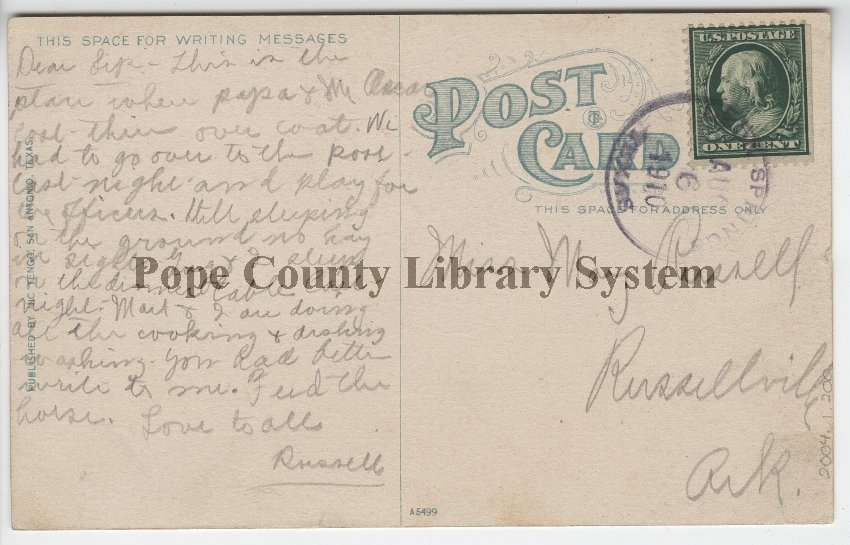 THIS SPACE FOR WRITING MESSAGES
Dear Sip - This is the
place where papa & Mr Oscar
lost their over coat. We
had to go over to the post
last night and play for
officers. Still sleeping
on the ground no hay
in sight. I slept
on the table last
night. & I are doing
all the cooking & dishing
washing. You had better
write to me. Feed the
horse. Love to all
Russell
PUBLISHED BY NIC TENGG, SAN ANTONIO, TEXAS.
POST CARD
THIS SPACE FOR ADDRESS ONLY
U.S. POSTAGE
ONE CENT
SPRINGS
AUG
6
1910
TEXAS
Miss May Russell
Russellville
Ark.
A5499
2004.1.200
Pope County Library System